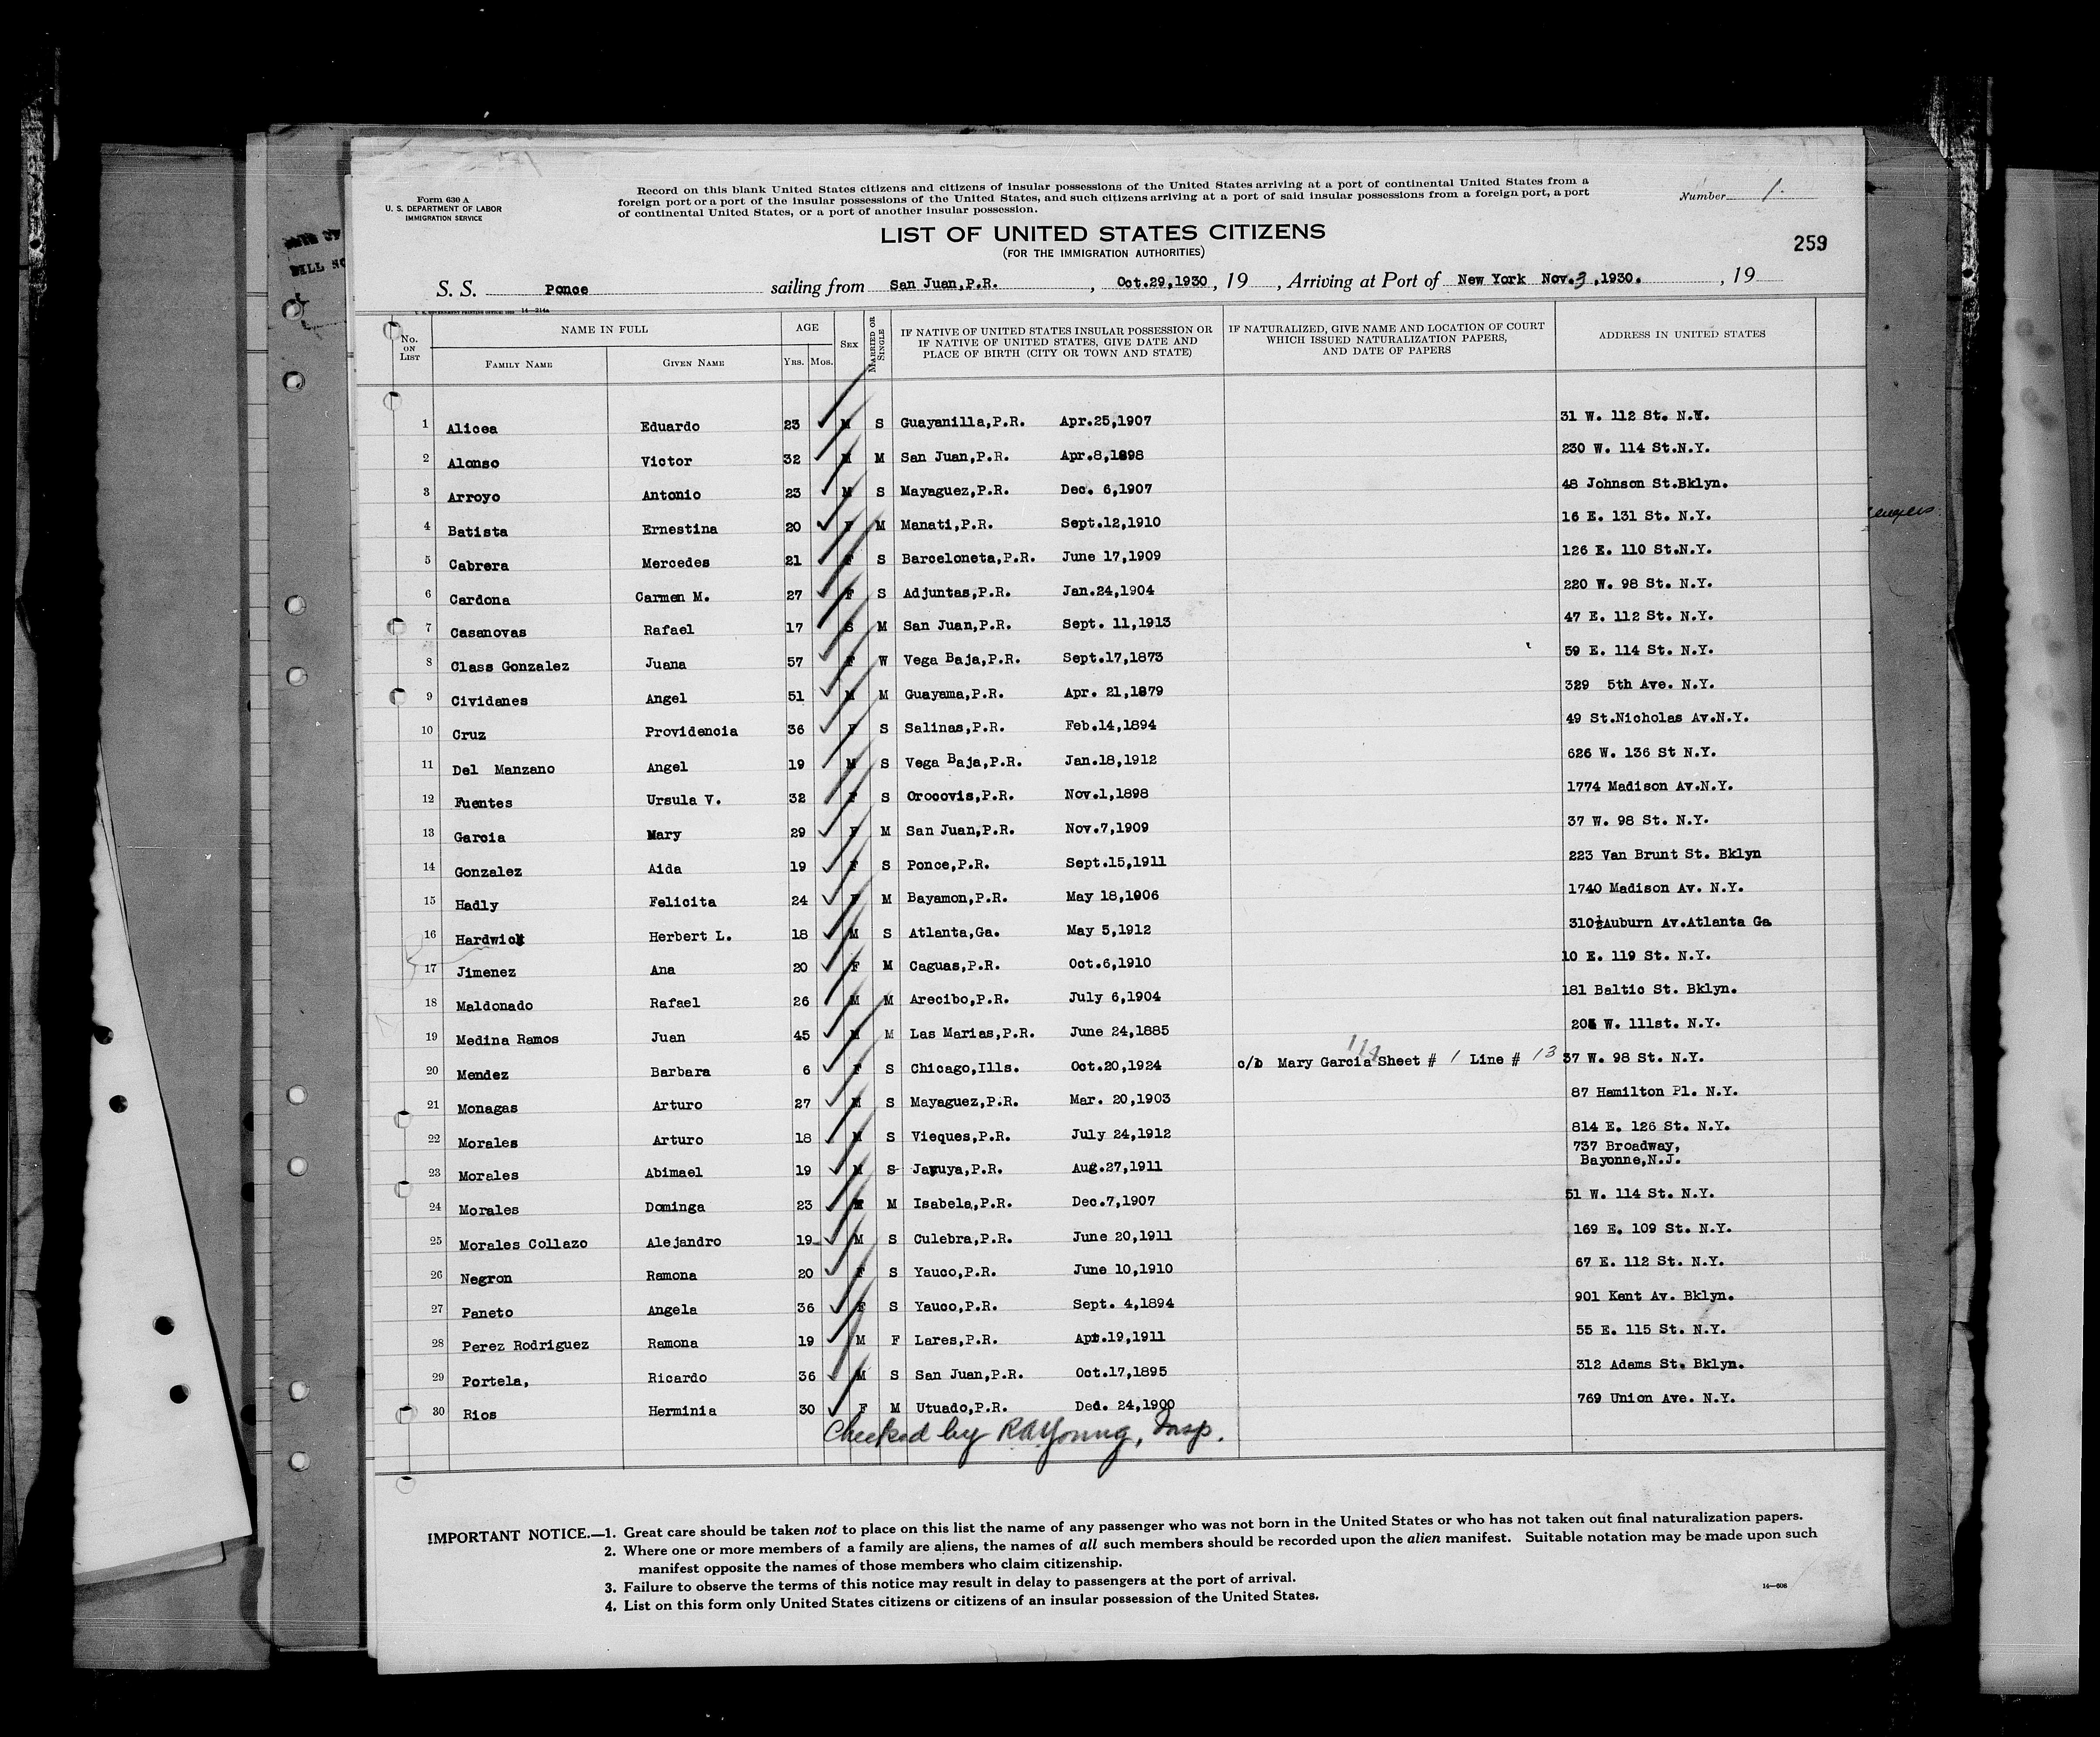 Form 630 A
U. S. DEPARTMENT OF LABOR
IMMIGRATION SERVICE
Record on this blank United States citizens and citizens of insular possessions of the United States arriving at a port of continental United States from a
foreign port or a port of the insular possessions of the United States, and such citizens arriving at a port of said insular possessions from a foreign port, a port
of continental United States, or a port of another insular possession.
Number 1.
LIST OF UNITED STATES CITIZENS
(FOR THE IMMIGRATION AUTHORITIES)
259
S. S. Ponce sailing from San Juan,P.R. , Oct.29,1930 , 19 , Arriving at Port of New York Nov.3,1930. , 19
No. ON LIST NAME IN FULL AGE SEX MARRIED OR SINGLE IF NATIVE OF UNITED STATES INSULAR POSSESSION OR IF NATIVE OF UNITED STATES, GIVE DATE AND PLACE OF BIRTH (CITY OR TOWN AND STATE) IF NATURALIZED, GIVE NAME AND LOCATION OF COURT WHICH ISSUED NATURALIZATION PAPERS, AND DATE OF PAPERS ADDRESS IN UNITED STATES
FAMILY NAME GIVEN NAME YRS. MOS.
1 Alicea Eduardo 23 M S Guayanilla,P.R. Apr.25,1907 31 W. 112 St. N.Y.
2 Alonso Victor 32 M M San Juan,P.R. Apr.8,1898 230 W. 114 St.N.Y.
3 Arroyo Antonio 23 M S Mayaguez,P.R. Dec. 6,1907 48 Johnson St.Bklyn.
4 Batista Ernestina 20 F M Manati,P.R. Sept.12,1910 16 E. 131 St. N.Y.
5 Cabrera Mercedes 21 F S Barceloneta,P.R. June 17,1909 126 E. 110 St.N.Y.
6 Cardona Carmen M. 27 F S Adjuntas,P.R. Jan.24,1904 220 W. 98 St. N.Y.
7 Casanovas Rafael 17 S M San Juan,P.R. Sept. 11,1913 47 E. 112 St. N.Y.
8 Class Gonzalez Juana 57 F W Vega Baja,P.R. Sept.17,1873 59 E. 114 St. N.Y.
9 Cividanes Angel 51 M M Guayama,P.R. Apr. 21,1879 329 5th Ave. N.Y.
10 Cruz Providencia 36 F S Salinas,P.R. Feb.14,1894 49 St.Nicholas Av.N.Y.
11 Del Manzano Angel 19 M S Vega Baja,P.R. Jan.18,1912 626 W. 136 St N.Y.
12 Fuentes Ursula V. 32 F S Orocovis,P.R. Nov.1,1898 1774 Madison Av.N.Y.
13 Garcia Mary 29 F M San Juan,P.R. Nov.7,1909 37 W. 98 St. N.Y.
14 Gonzalez Aida 19 F S Ponce,P.R. Sept.15,1911 223 Van Brunt St. Bklyn
15 Hadly Felicita 24 F M Bayamon,P.R. May 18,1906 1740 Madison Av. N.Y.
16 Hardwick Herbert L. 18 M S Atlanta,Ga. May 5,1912 310½Auburn Av.Atlanta Ga
17 Jimenez Ana 20 F M Caguas,P.R. Oct.6,1910 10 E. 119 St. N.Y.
18 Maldonado Rafael 26 M M Arecibo,P.R. July 6,1904 181 Baltic St. Bklyn.
19 Medina Ramos Juan 45 M M Las Marias,P.R. June 24,1885 W. 111st. N.Y.
20 Mendez Barbara 6 F S Chicago,Ills. Oct.20,1924 c/o Mary Garcia Sheet # 1 Line # 13 37 W. 98 St. N.Y.
21 Monagas Arturo 27 M S Mayaguez,P.R. Mar. 20,1903 87 Hamilton Pl. N.Y.
22 Morales Arturo 18 M S Vieques,P.R. July 24,1912 814 E. 126 St. N.Y.
23 Morales Abimael 19 M S Jayuya,P.R. Aug.27,1911 737 Broadway,
Bayonne,N.J.
24 Morales Dominga 23 M Isabela,P.R. Dec.7,1907 51 W. 114 St. N.Y.
25 Morales Collazo Alejandro 19 M S Culebra,P.R. June 20,1911 169 E. 109 St. N.Y.
26 Negron Ramona 20 F S Yauco,P.R. June 10,1910 67 E. 112 St. N.Y.
27 Paneto Angela 36 F S Yauco,P.R. Sept. 4,1894 901 Kent Av. Bklyn.
28 Perez Rodriguez Ramona 19 M F Lares,P.R. Apr.19,1911 55 E. 115 St. N.Y.
29 Portela, Ricardo 36 M S San Juan,P.R. Oct.17,1895 312 Adams St. Bklyn.
30 Rios Herminia 30 F M Utuado,P.R. Ded. 24,1900 769 Union Ave. N.Y.
Checked by RAYoung, Insp.
IMPORTANT NOTICE.—1. Great care should be taken not to place on this list the name of any passenger who was not born in the United States or who has not taken out final naturalization papers.
2. Where one or more members of a family are aliens, the names of all such members should be recorded upon the alien manifest. Suitable notation may be made upon such
manifest opposite the names of those members who claim citizenship.
3. Failure to observe the terms of this notice may result in delay to passengers at the port of arrival.
4. List on this form only United States citizens or citizens of an insular possession of the United States.
14—606